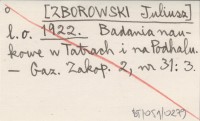 [ZBOROWSKI Juliusz]
l.o. 1922. Badania nau-
kowe w Tatrach i na Podhalu.
— Gaz. Zakop. 2, nr 31: 3.